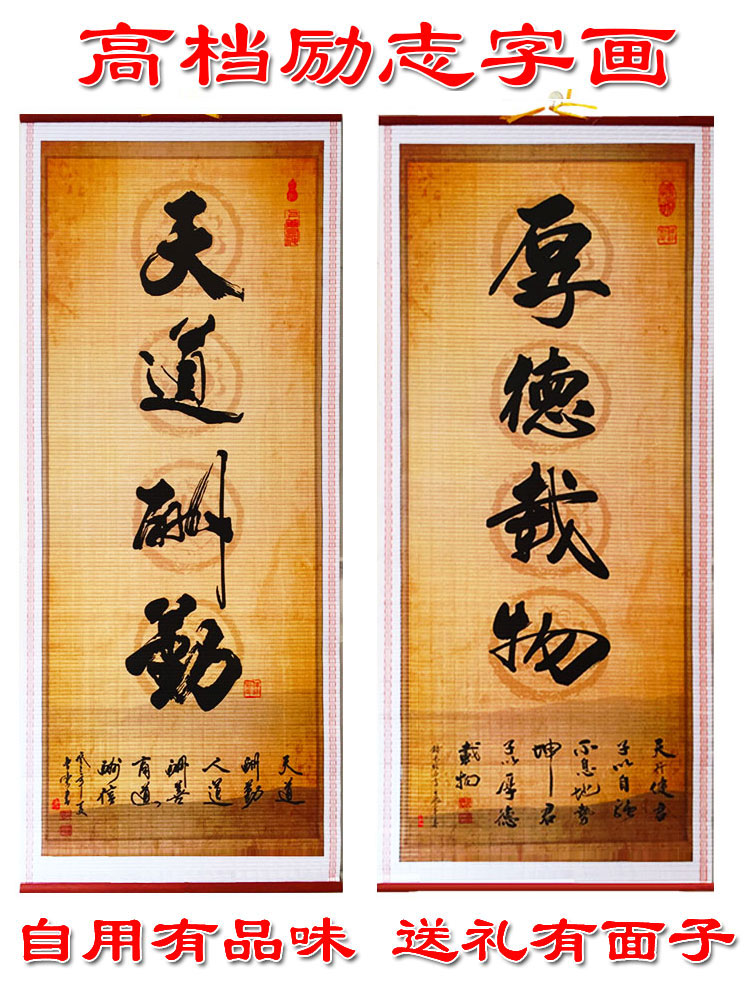 高档励志字画
天道酬勤
天道
酬勤
人道
酬善
商道
酬信
厚德载物
天行健君
子以自强
不息地势
坤君
子以厚德
载物
自用有品味 送礼有面子